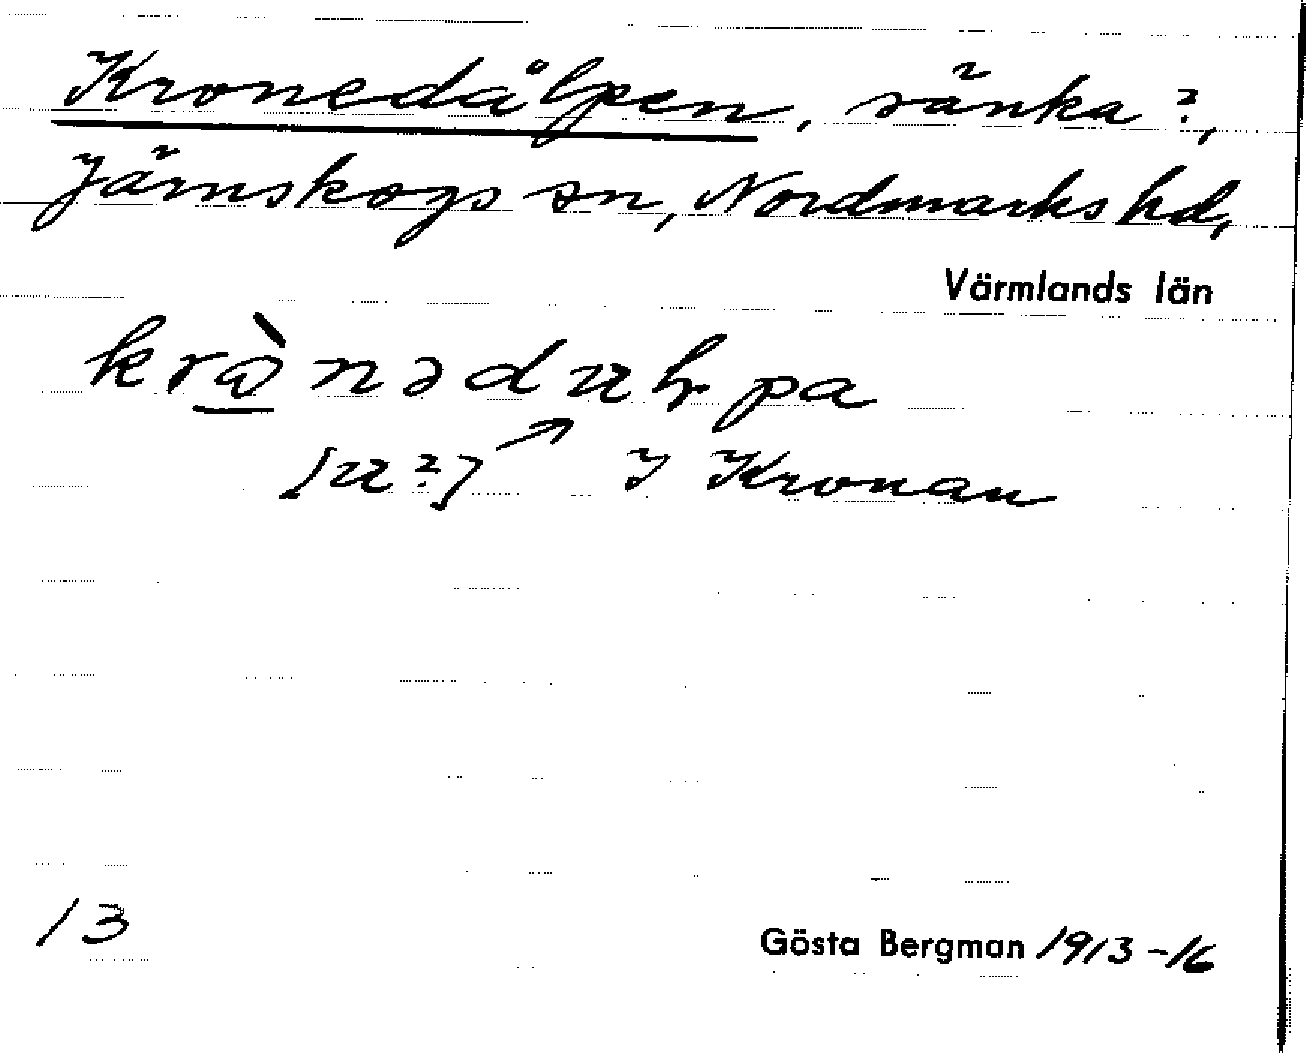 Kronedålpen, sänka?,
Järnskogs sn, Nordmarks hd,
Värmlands län
[u?] I Kronan
13
Gösta Bergman 1913-16